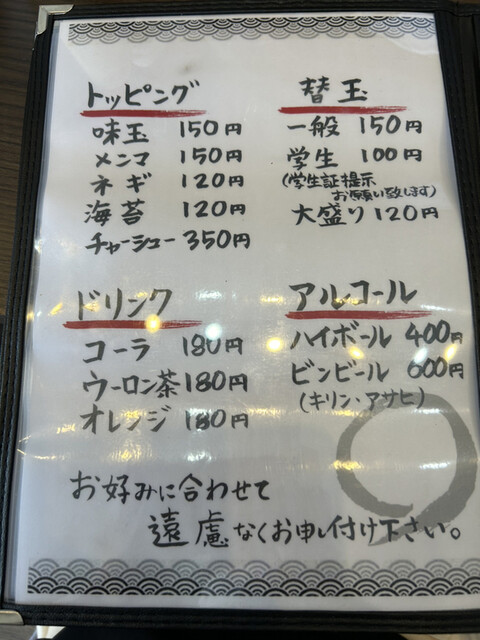 トッピング
味玉 150円
メンマ 150円
ネギ 120円
海苔 120円
チャーシュー 350円
替玉
一般 150円
学生 100円
(学生証提示
お願い致します)
大盛り 120円
ドリンク
コーラ 180円
ウーロン茶 180円
オレンジ 180円
アルコール
ハイボール 400円
ビンビール 600円
(キリン・アサヒ)
お好みに合わせて
遠慮なくお申し付け下さい。